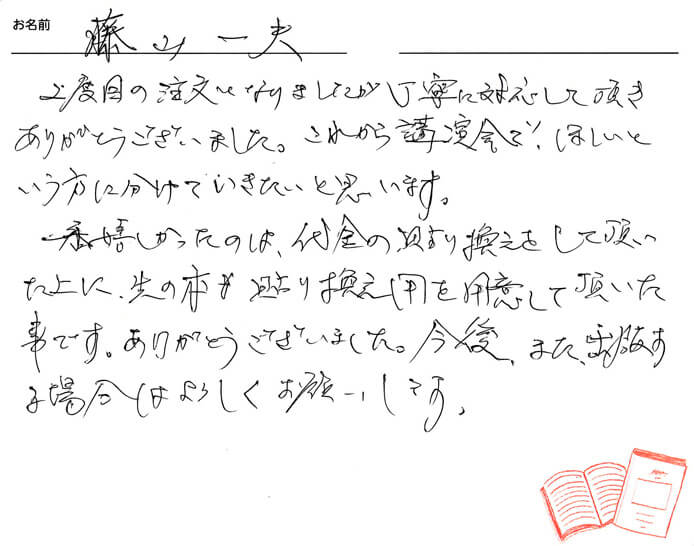 お名前 藤山一夫
2度目の注文となりましたが丁寧に対応して頂き
ありがとうございました。これから講演会で、ほしいと
いう方に分けていきたいと思います。
一番嬉しかったのは、代金の貼り換えをして頂い
た上に、先の本も貼り換え用を用意して頂いた
事です。ありがとうございました。今後、また、出版す
る場合はよろしくお願いします。